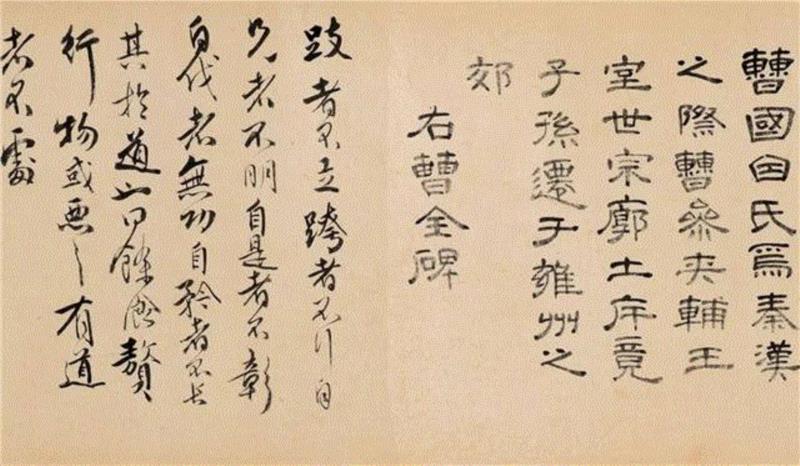 曹國因氏焉秦漢
之際曹參夾輔王
室世宗廓土斥竟
子孫遷于雍州之
郊
右曹全碑
跂者不立跨者不行自
見者不明自是者不彰
自伐者無功自矜者不長
其於道也曰餘食贅
行物或惡之有道
者不處